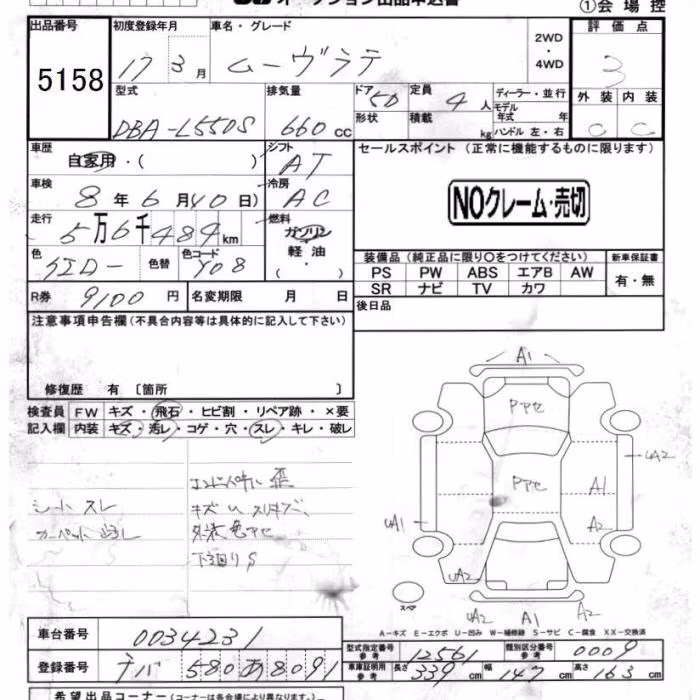 オークション出品申込書
①会場控
出品番号 初度登録年月 車名・グレード 評価点
5158 17 3月 ムーヴラテ 2WD ・ 4WD 3
型式 排気量 ドア 定員 ディーラー・並行 外装 内装
DBA-L550S 660cc 5D 4人 モデル年式 年 C C
形状 積載 kg ハンドル 左・右
車歴 自家用・( ) シフト AT セールスポイント(正常に機能するものに限ります)
車検 8年6月(10日) 冷房 AC NOクレーム・売切
走行 5万6千489km 燃料 ガソリン 軽油 ( ・ )
色 イエロー 色替 色コード Y08
装備品(純正品に限り〇をつけてください) 新車保証書
PS PW ABS エアB AW 有・無
SR ナビ TV カワ
R券 9100円 名変期限 月 日 後日品
注意事項申告欄(不具合内容等は具体的に記入して下さい)
修復歴 有 〔箇所 〕
検査員 FW キズ・飛石・ヒビ割・リペア跡・×要
記入欄 内装 キズ・汚レ・コゲ・穴・スレ・キレ・破レ
シート スレ
キズ
下廻りS
A1
Pアセ
Pアセ
UA2
A1
UA1
A2
UA2
スペア
UA2 A1 A2
A-キズ E-エクボ U-凹み W-補修跡 S-サビ C-腐食 XX-交換済
車台番号 0034231
型式指定番号 参考 12561 類別区分番号 参考 0009
登録番号 ナバ 580 あ 8091
車庫証明用 参考 長さ 339cm 幅 147cm 高さ 163cm
希望出品コーナー(コーナーは各会場により異なります。)